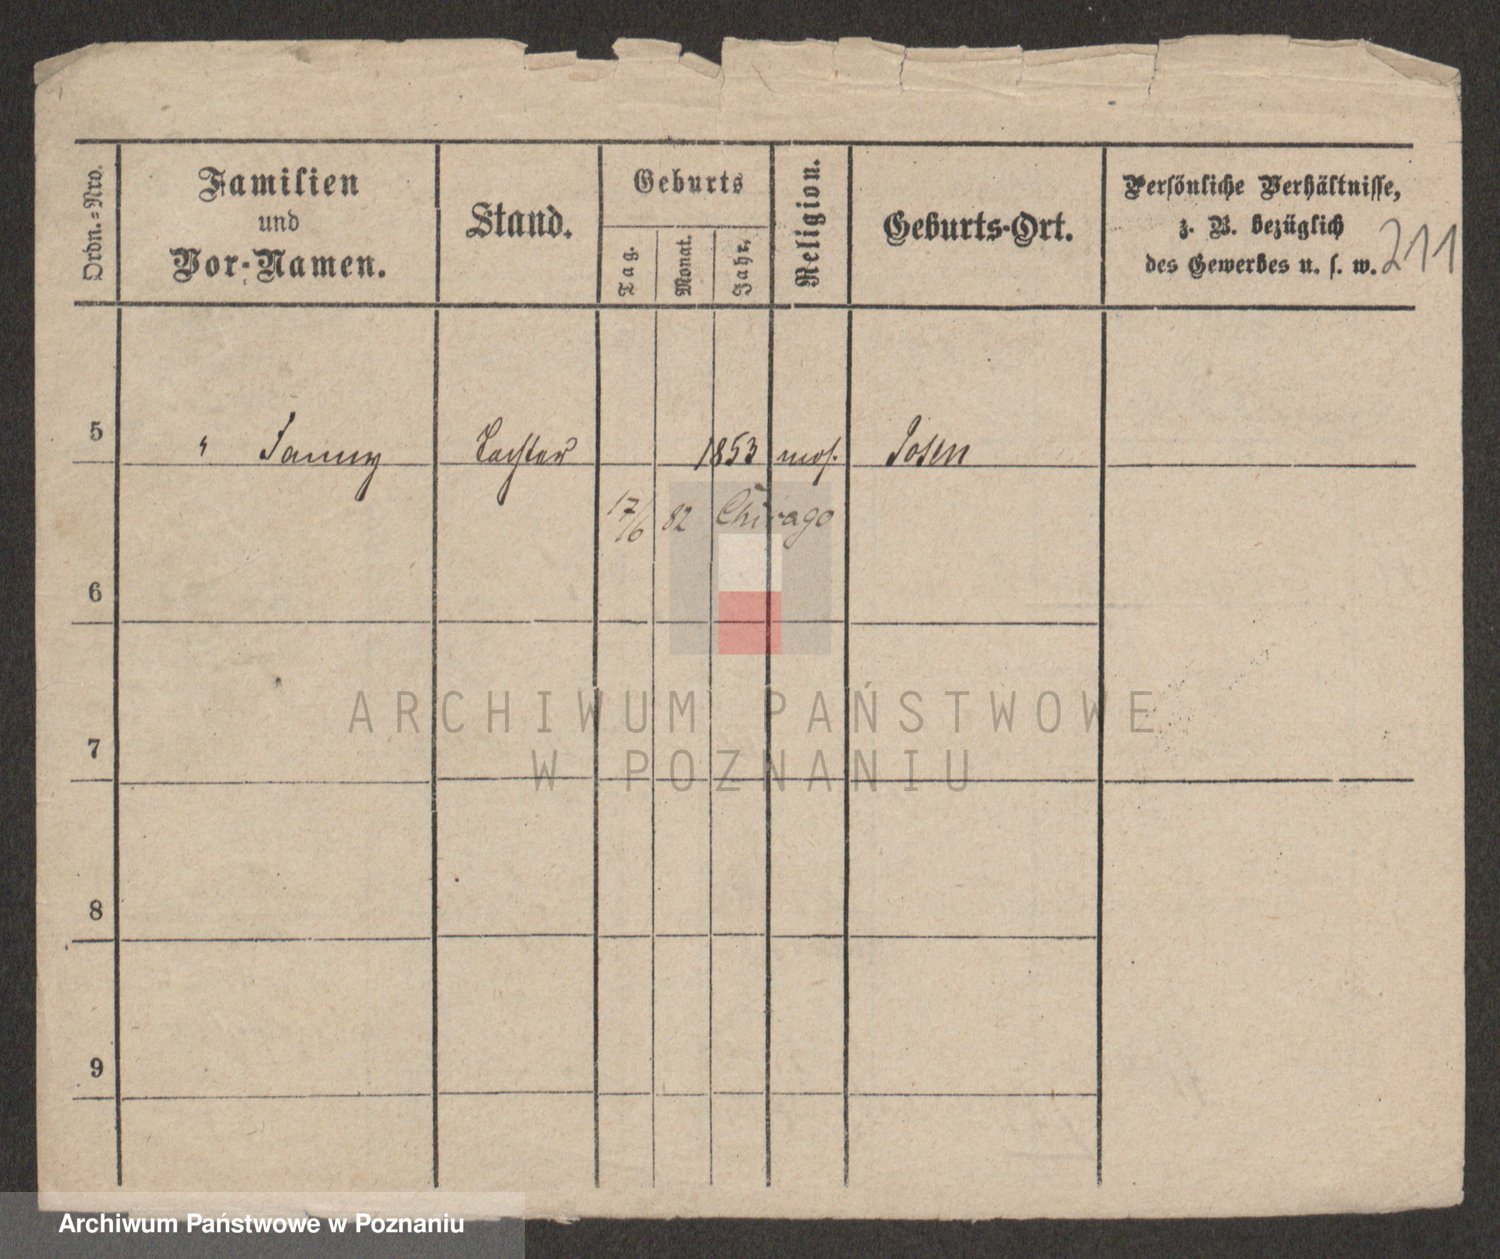 Ordn.=Nro.
Familien
und
Vor-Namen.
Stand.
Geburts
Tag.
Monat.
Jahr.
Religion.
Geburts-Ort.
Persönliche Verhältnisse,
z. B. bezüglich
des Gewerbes u. s. w.
211
5 " Fanny Tochter 1853 mos. Posen
17/6 82 Chicago
6
7
8
9
ARCHIWUM PAŃSTWOWE
W POZNANIU
Archiwum Państwowe w Poznaniu